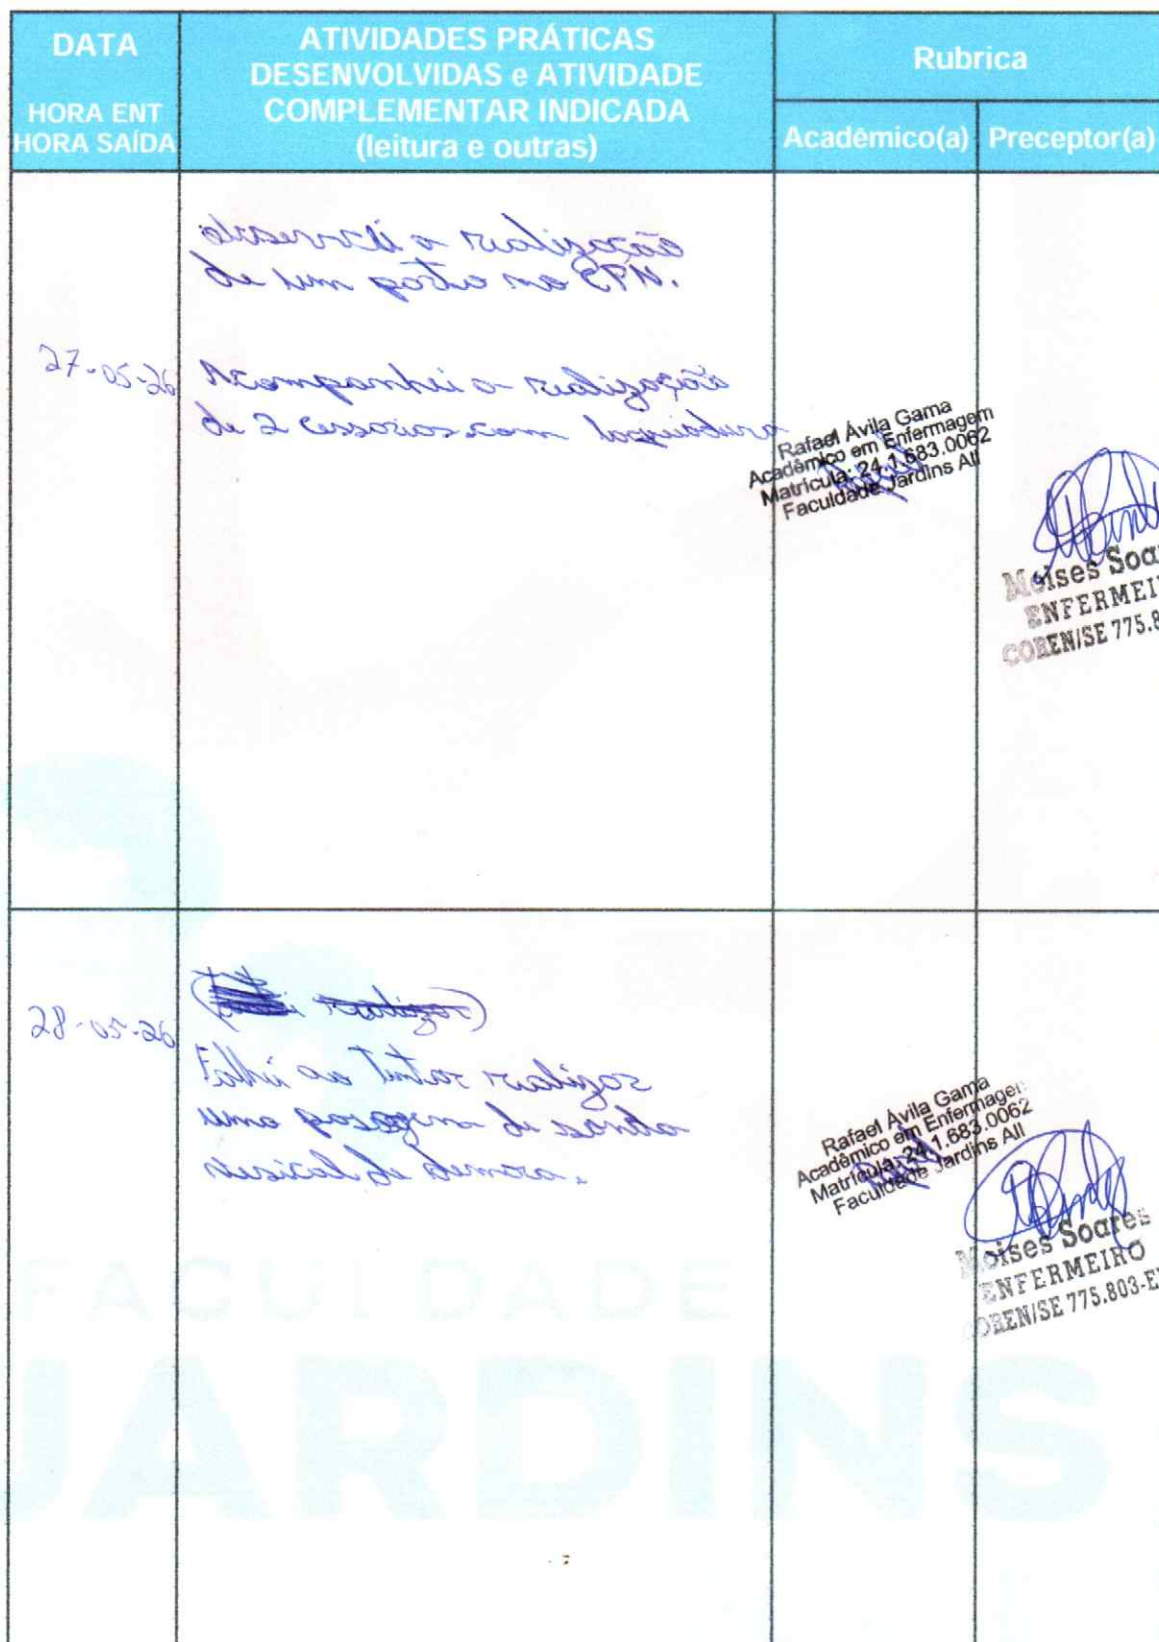 DATA
HORA ENT
HORA SAÍDA
ATIVIDADES PRÁTICAS
DESENVOLVIDAS e ATIVIDADE
COMPLEMENTAR INDICADA
(leitura e outras)
Rubrica
Acadêmico(a)
Preceptor(a)
observei a realização
de um parto no CPN.
27-05-26
Acompanhei a realização
de 2 cessarias com laqueadura
Rafael Ávila Gama
Acadêmico em Enfermagem
Matrícula: 24.1.683.0062
Faculdade Jardins All
Moises Soar
ENFERMEI
COREN/SE 775.8
28-05-26
realizar)
Falhei ao tentar realizar
uma passagem de sonda
vesical de demora.
Rafael Ávila Gama
Acadêmico em Enfermagem
Matrícula: 24.1.683.0062
Faculdade Jardins All
Moises Soares
ENFERMEIRO
COREN/SE 775.803-E
FACULDADE
JARDINS